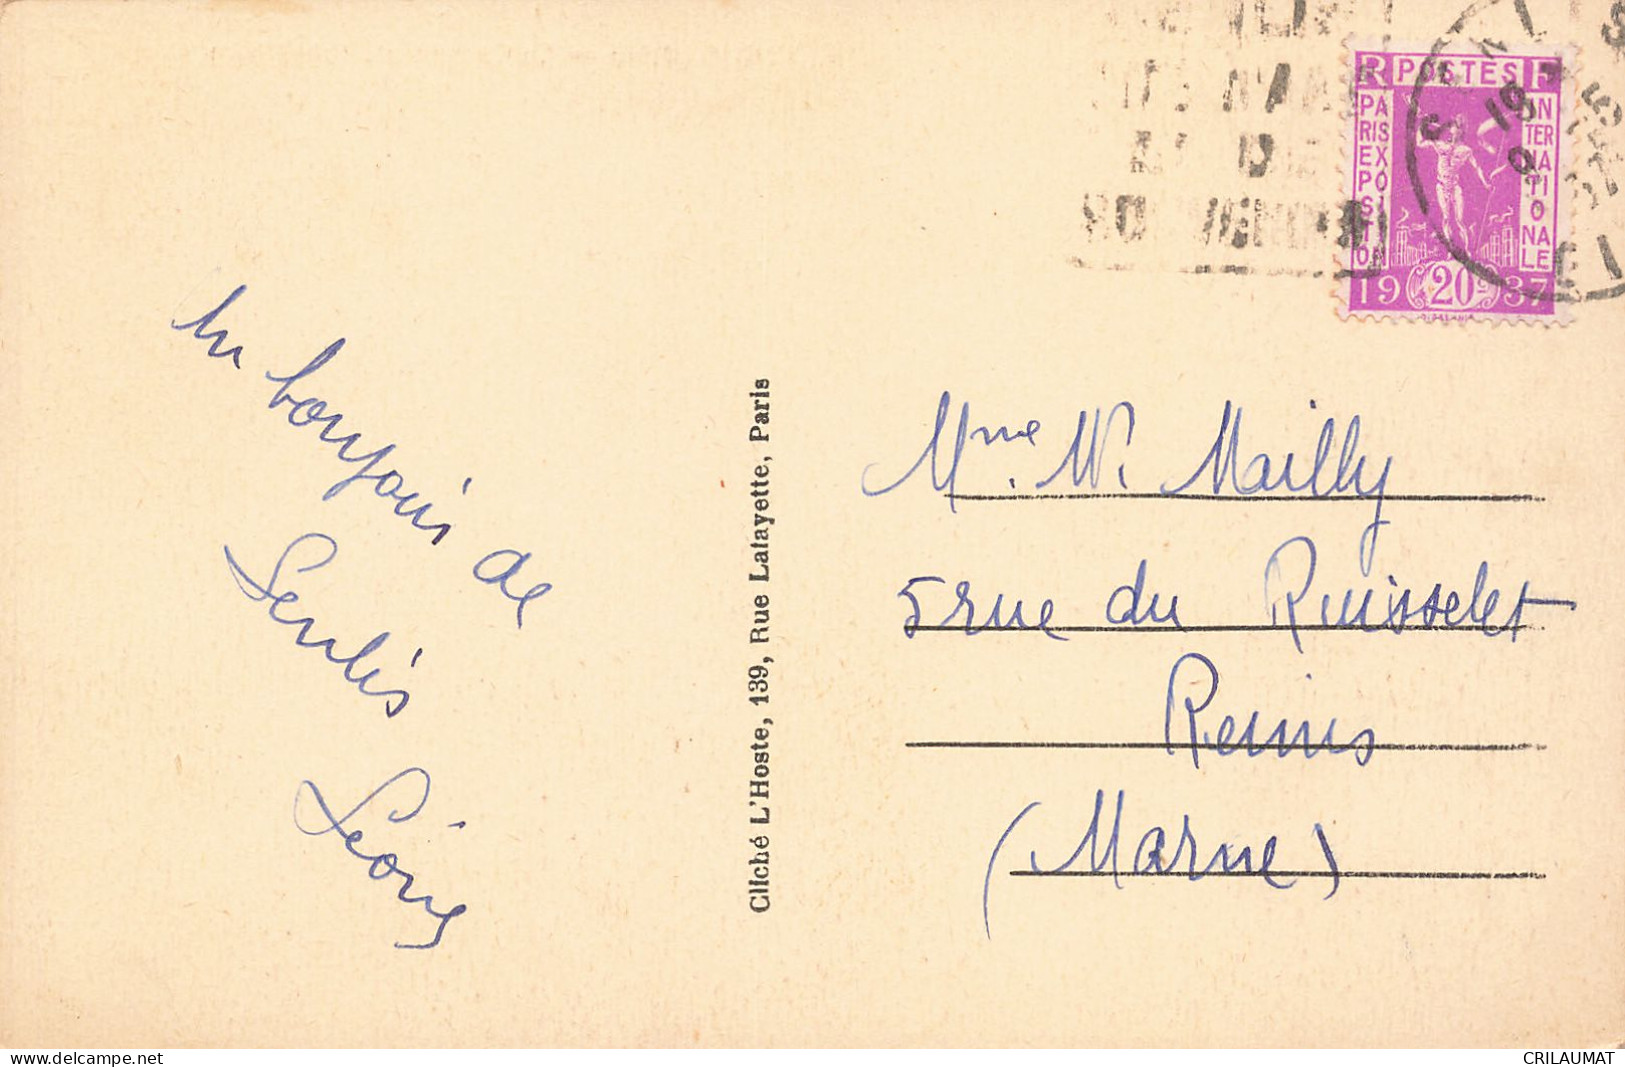 un bonjour de
Senlis
Léone
Cliché L'Hoste, 139, Rue Lafayette, Paris
RF POSTES
PARIS EXPOSITION
INTERNATIONALE
1937
20c
SENLIS
OISE
Mme. W. Mailly
5 rue du Ruisselet
Reims
(Marne)
www.delcampe.net
CRILAUMAT